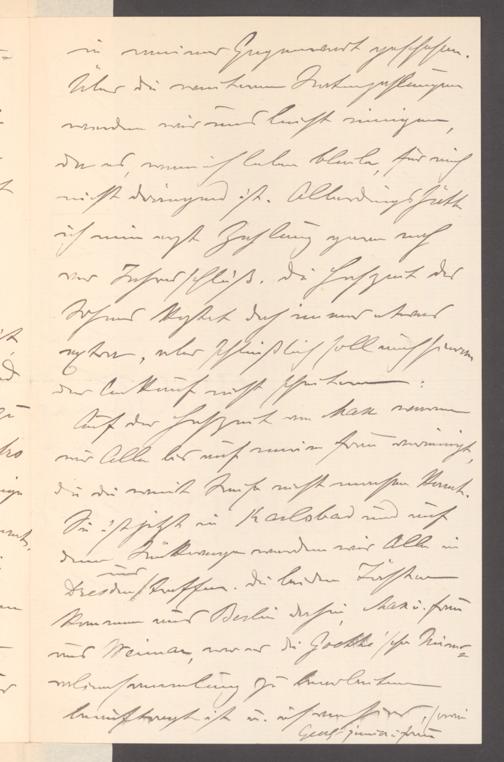 in meiner Gegenwart geschehen.
Über die weiteren Ratenzahlungen
werden wir uns leicht einigen,
da es, wenn ich leben bleibe, für mich
nicht dringend ist. Allerdings hätte
ich eine erste Zahlung gerne noch
vor Jahresschluß. Die Hochzeit des
Sohnes kostet doch immer etwas
extra, aber schließlich soll auch hieran
der Ankauf nicht scheitern:
Auf der Hochzeit von Max waren
wir Alle bis auf meine Frau vereinigt,
die die weite Reise nicht machen konnte.
Sie ist jetzt in Karlsbad und auf
dem Rückwege werden wir Alle in
Dresden uns treffen. Die beiden Töchter
kommen aus Berlin dahin, Max u. Frau
aus Weimar, wo er die Goethe'sche Mine-
raliensammlung zu bearbeiten
beauftragt ist u. ich von hier, sowie
Georg junior u. Frau